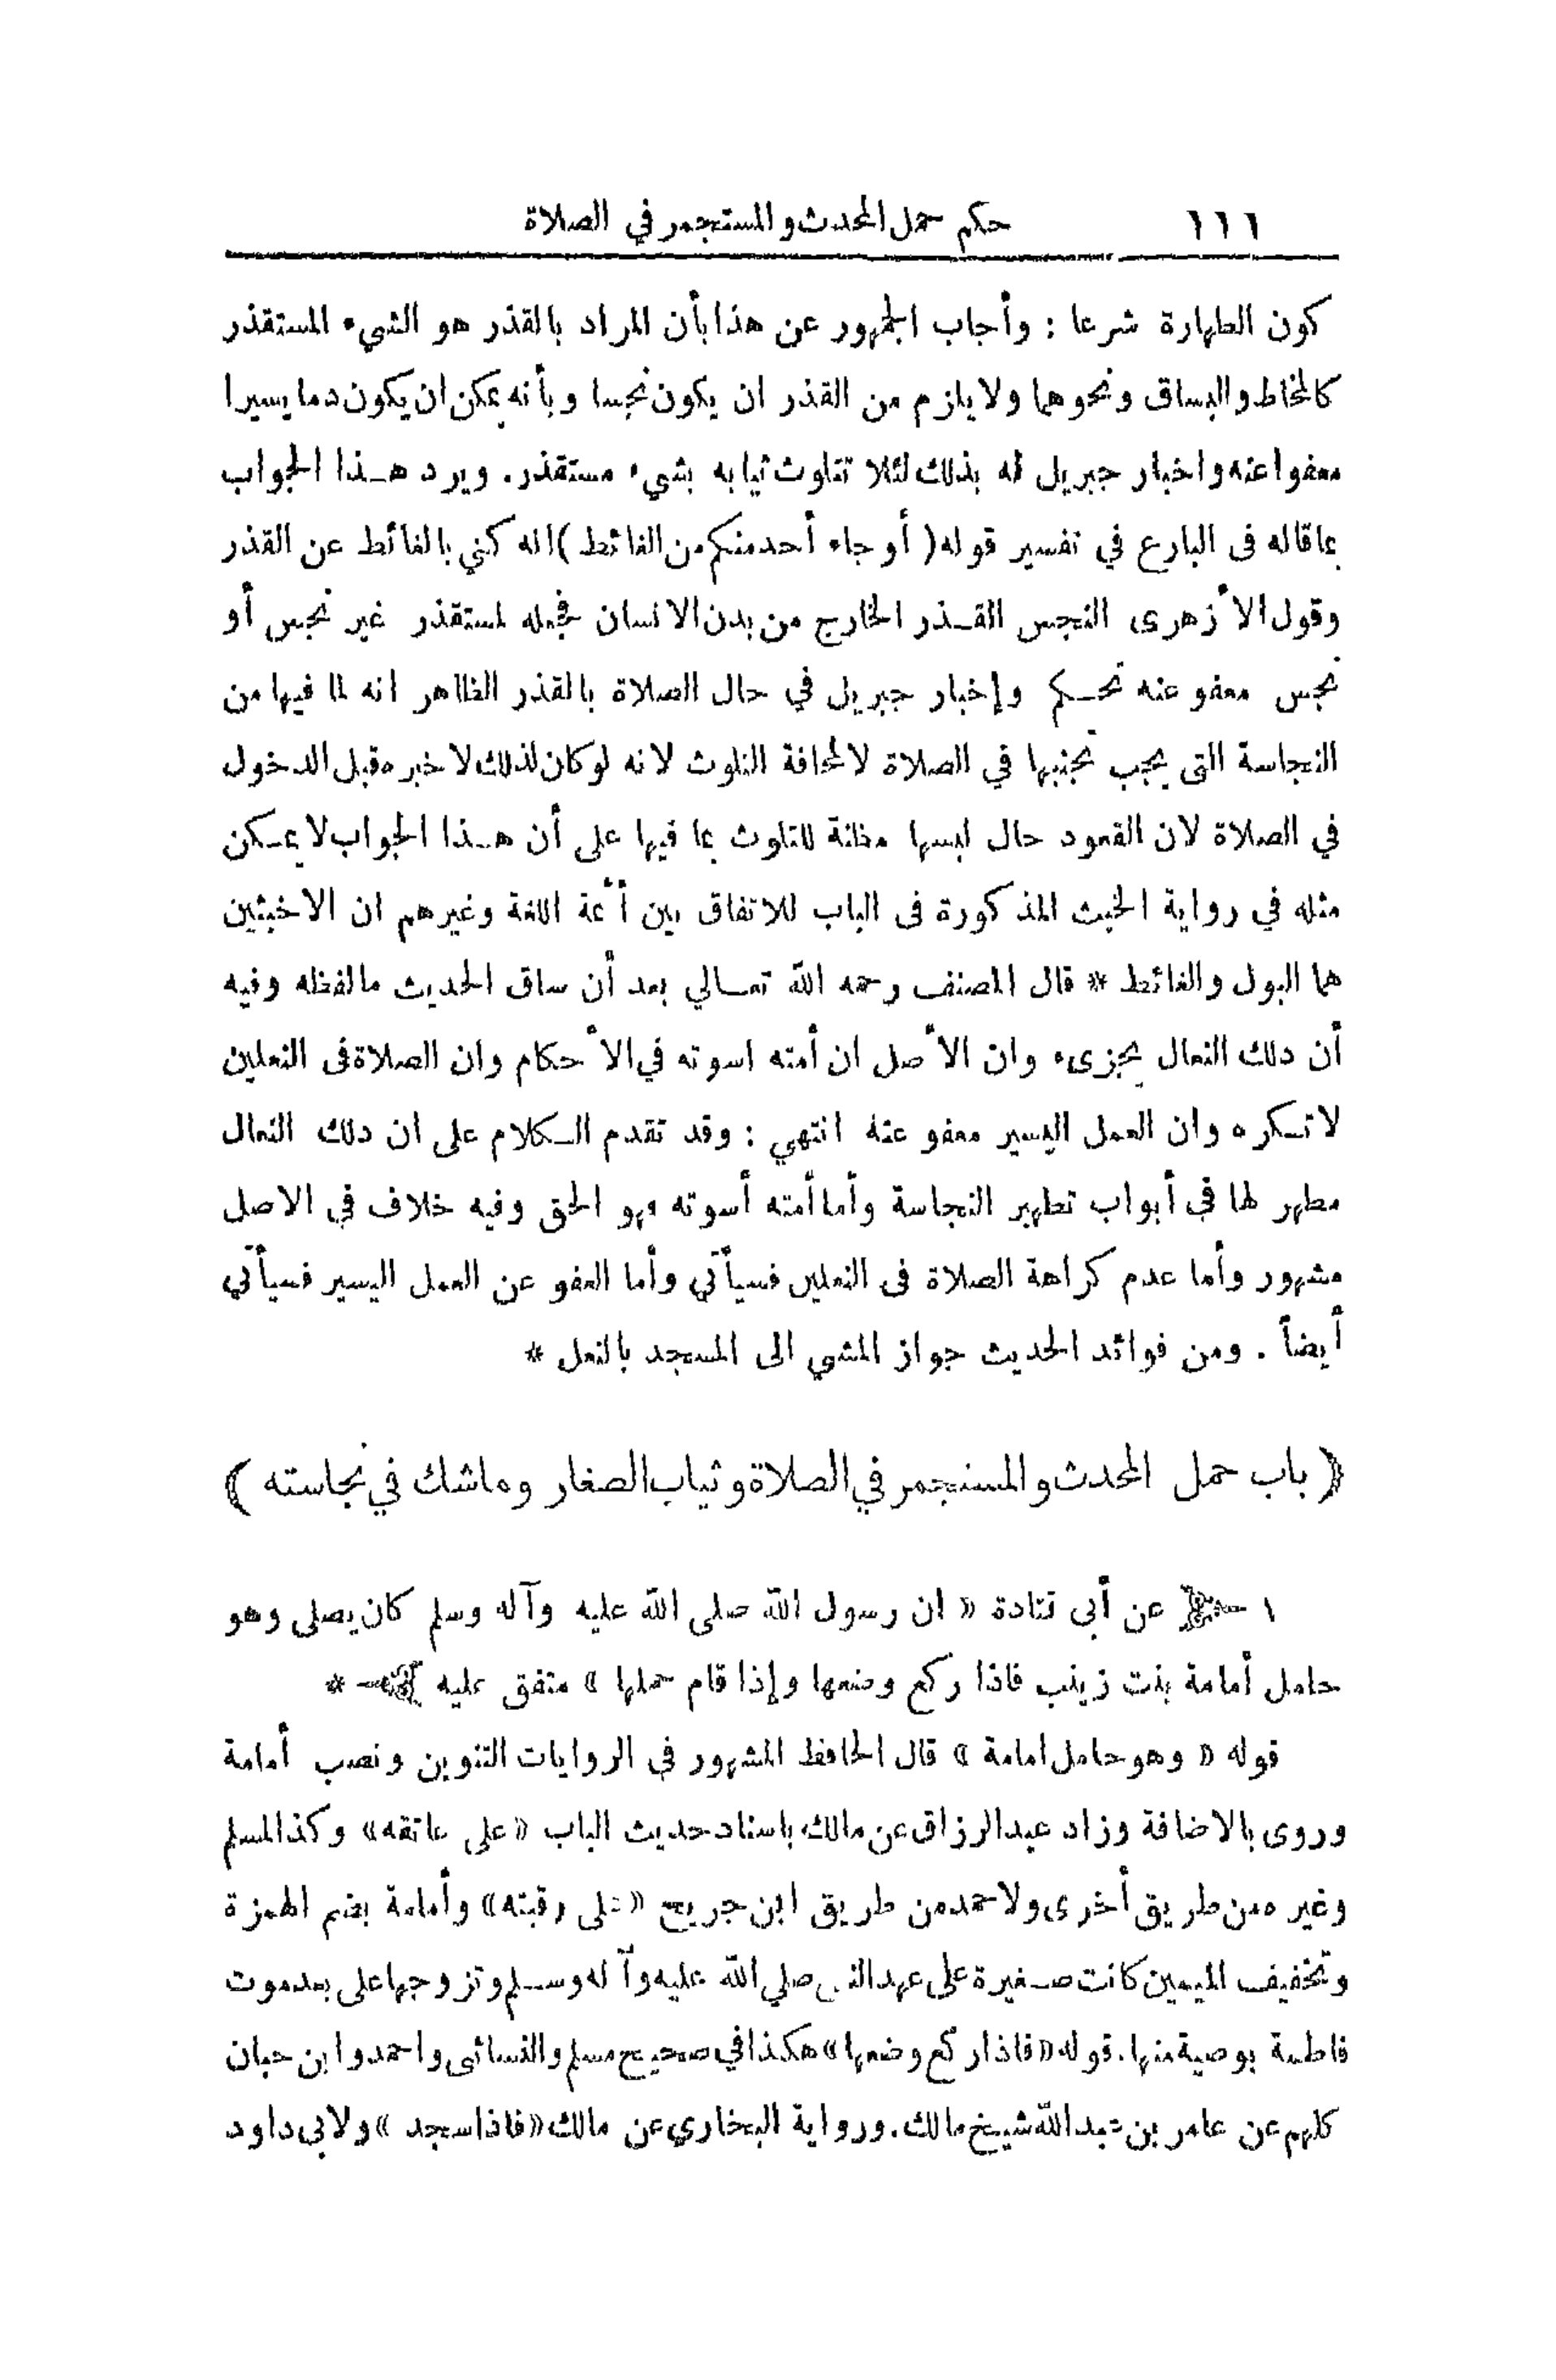 ١١١ حكم حمل المحدث والمستجمر في الصلاة
كون الطهارة شرعا : وأجاب الجمهور عن هذا بأن المراد بالقذر هو الشيء المستقذر
كالمخاط والبساق ونحوهما ولا يلزم من القذر ان يكون نجسا وبأنه يمكن ان يكون دما يسيرا
معفوا عنه واخبار جبريل له بذلك لئلا تتلوث ثيابه بشيء مستقذر . ويرد هـذا الجواب
بما قاله فى البارع في تفسير قوله ( أو جاء أحد منكم من الغائط ) انه كني بالغائط عن القذر
وقول الأزهرى النجس القـذر الخارج من بدن الانسان فجعله لمستقذر غير نجس أو
نجس معفو عنه تحـكم وإخبار جبريل في حال الصلاة بالقذر الظاهر انه لما فيها من
النجاسة التى يجب تجنبها في الصلاة لا لمخافة التلوث لانه لو كان لذلك لاخبره قبل الدخول
في الصلاة لان القعود حال لبسها مظنة للتلوث بما فيها على أن هـذا الجواب لا يمـكن
مثله في رواية الخبث المذكورة فى الباب للاتفاق بين أئمة اللغة وغيرهم ان الاخبثين
هما البول والغائط * قال المصنف رحمه الله تعـالي بعد أن ساق الحديث مالفظه وفيه
أن دلك النعال يجزىء وان الأصل ان أمته اسوته في الأحكام وان الصلاة فى النعلين
لا تـكره وان العمل اليسير معفو عنه انتهي : وقد تقدم الـكلام على ان دلك النعال
مطهر لها في أبواب تطهير النجاسة وأما أمته أسوته فهو الحق وفيه خلاف في الاصل
مشهور وأما عدم كراهة الصلاة فى النعلين فسيأتي وأما العفو عن العمل اليسير فسيأتي
أيضاً . ومن فوائد الحديث جواز المشي الى المسجد بالنعل *
﴿ باب حمل المحدث والمستجمر في الصلاة وثياب الصغار وما شك في نجاسته ﴾
١ عن أبى قتادة « ان رسول الله صلى الله عليه وآله وسلم كان يصلى وهو
حامل أمامة بنت زينب فاذا ركع وضعها وإذا قام حملها » متفق عليه *
قوله « وهو حامل امامة » قال الحافظ المشهور في الروايات التنوين ونصب أمامة
وروى بالاضافة وزاد عبد الرزاق عن مالك باسناد حديث الباب « على عاتقه » وكذا لمسلم
وغيره من طريق أخرى ولاحمد من طريق ابن جريج « على رقبته » وأمامة بضم الهمزة
وتخفيف الميمين كانت صـغيرة على عهد النبي صلي الله عليه وآله وسـلم وتزوجها على بعد موت
فاطمة بوصية منها . قوله « فاذا ركع وضعها » هكذا في صحيح مسلم والنسائى واحمد وابن حبان
كلهم عن عامر بن عبد الله شيخ مالك . ورواية البخاري عن مالك « فاذا سجد » ولابى داود